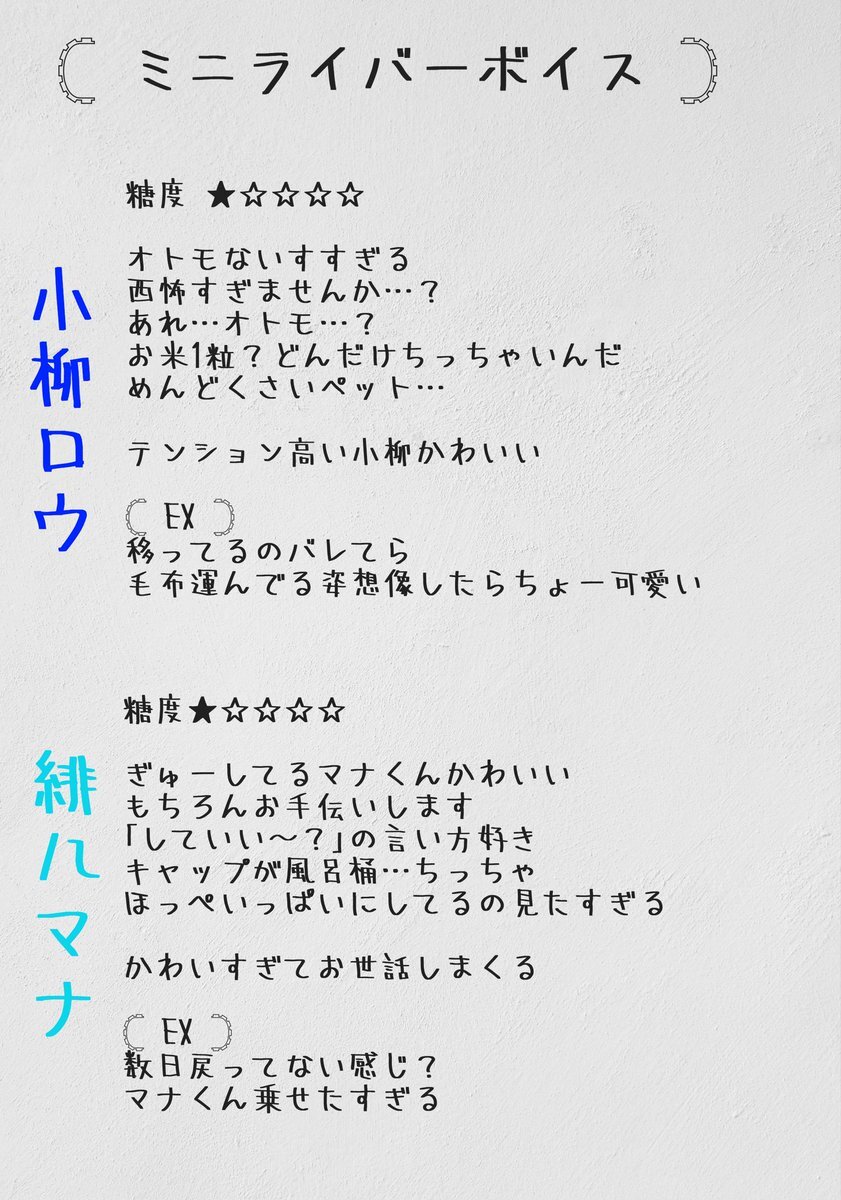 ミニライバーボイス
小柳ロウ
糖度 ★☆☆☆☆
オトモないすすぎる
西怖すぎませんか…？
あれ…オトモ…？
お米1粒？どんだけちっちゃいんだ
めんどくさいペット…
テンション高い小柳かわいい
EX
移ってるのバレてら
毛布運んでる姿想像したらちょー可愛い
緋八マナ
糖度★☆☆☆☆
ぎゅーしてるマナくんかわいい
もちろんお手伝いします
「していい〜？」の言い方好き
キャップが風呂桶…ちっちゃ
ほっぺいっぱいにしてるの見たすぎる
かわいすぎてお世話しまくる
EX
数日戻ってない感じ？
マナくん乗せたすぎる